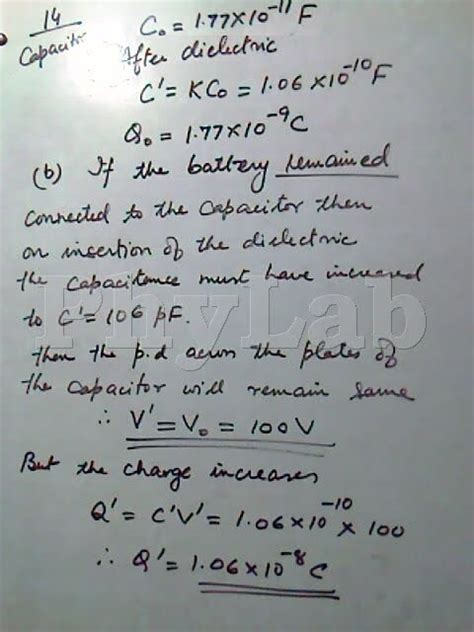 14
Capacitor
C₀ = 1.77×10⁻¹¹ F
After dielectric
C' = KC₀ = 1.06 ×10⁻¹⁰ F
Q₀ = 1.77×10⁻⁹ C
(b) If the battery remained
connected to the capacitor then
on insertion of the dielectric
the capacitance must have increased
to C' = 106 pF.
PhyLab
then the p.d across the plates of
the capacitor will remain same
∴ V' = V₀ = 100V
But the charge increases
Q' = C'V' = 1.06×10⁻¹⁰ × 100
∴ Q' = 1.06×10⁻⁸ C